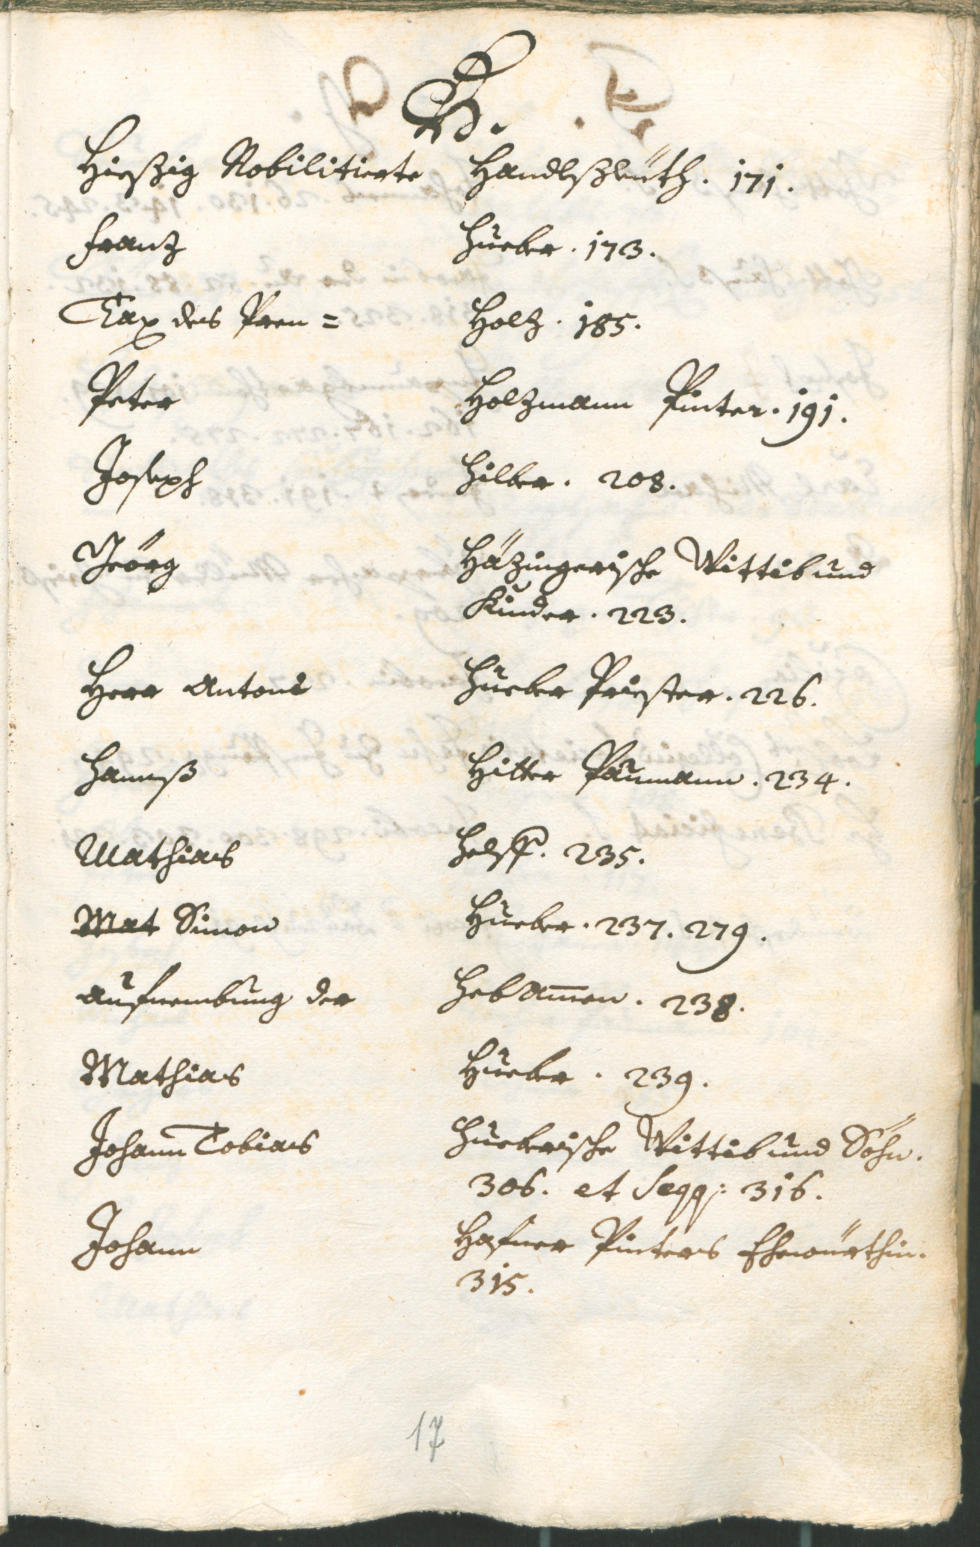 H.
Hießig Nobilitierte Handlßleüth. 171.
Franz Hueber. 173.
Tax des Pren= Holz. 185.
Peter Holzmann Pinter. 191.
Joseph Hilber. 208.
Geörg Häzingerische Wittib und
Kinder. 223.
Herr Antoni Hueber Priester. 226.
Hannß Hitter Paumann. 234.
Mathias 235.
Mat Simon Hueber. 237. 279.
Aufnembung der Hebamen. 238.
Mathias Hueber. 239.
Johann Tobias Hueberische Wittib und Söhn.
306. et seqq: 316.
Johann Hafner Pinters Ehewürthin.
315.
17